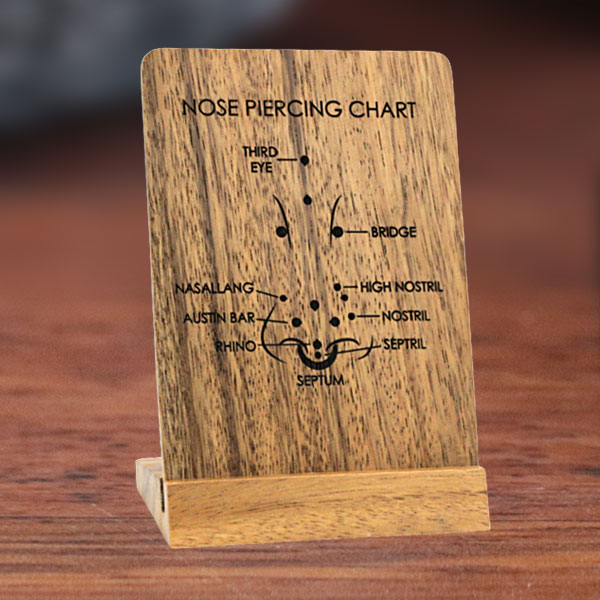 NOSE PIERCING CHART
THIRD
EYE
BRIDGE
NASALLANG
HIGH NOSTRIL
AUSTIN BAR
NOSTRIL
RHINO
SEPTRIL
SEPTUM